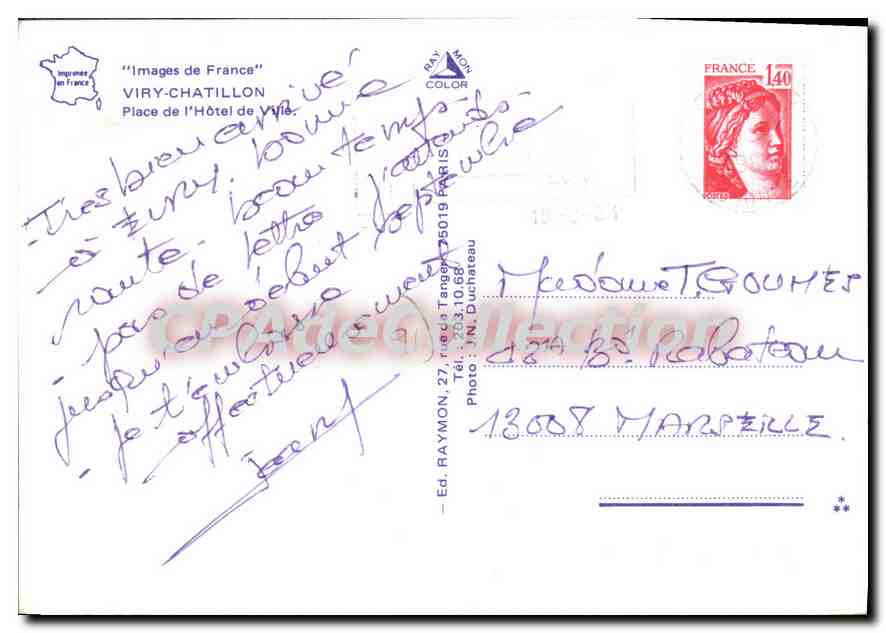 Imprimée
en France
"Images de France"
VIRY-CHATILLON
Place de l'Hôtel de Ville.
RAYMON
COLOR
FRANCE
1,40
POSTES
- Très bien arrivé
à EVRY. bonne
santé. beau temps-
- pas de lettre j'attends-
jusqu'au début septembre
- je t'embrasse
affectueusement
Madame T. GOUMES
Bd. Rabateau
13008 MARSEILLE.
Ed. RAYMON, 27, rue de Tanger, 75019 PARIS
Tél. : 203.10.68
Photo : J.N. Duchateau
CPAdeCollection